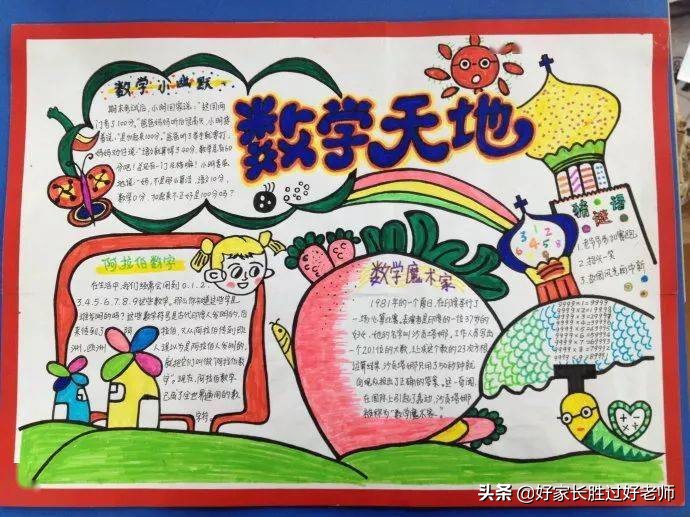 数学天地
数学小幽默
期末考试后,小明回家说:"这回两
门考了100分。"爸爸妈妈听后很高兴,小明接
着说:"是加起来100分。"爸爸听了举手就要打,
妈妈劝住说:"语文就算得了40分,数学总有60
分吧!
小明委屈
地说:"妈,不是那么算法,语文10分,
数学0分,加起来不正好是100分吗?
阿拉伯数字
在生活中,我们经常会用到0、1、2、
3、4、5、6、7、8、9这些数字。那么你知道这些字是
谁发明的吗?这些数字符号是古代印度人发明的,后
来传到阿拉伯,又从阿拉伯传到欧
洲,欧洲人误以为是阿拉伯人发明的,
就把它们叫做"阿拉伯数
字"。现在,阿拉伯数字
已成了全世界通用的数
字符
数学魔术家
1981年的一个夏日,在印度举行了
一场心算比赛。表演者是印度的一位37岁的
妇女,她的名字叫沙贡塔娜
工作人员写出
一个201位的大数,让求这个数的23次方根
运算结果,沙贡塔娜只用了50秒钟就
向观众报出了正确的答案。这一奇闻,
在国际上引起了轰动,沙贡塔娜
被称为"数学魔术家"。
猜谜语
1.老爷爷参加赛跑。
2.相兴一笑
3.
1 2 3
6 4 5 8
9999×1=9999
9999×2=19998
头条 @好家长胜过好老师